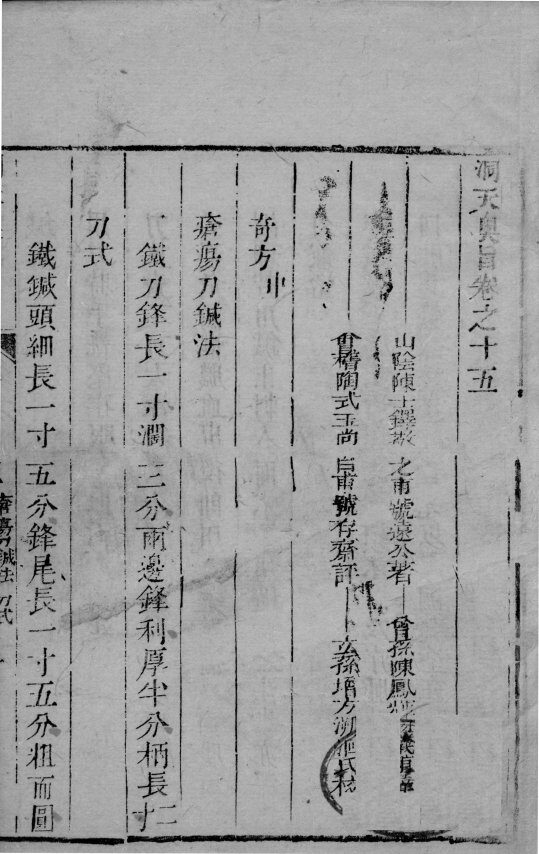 洞天奧旨卷之十五
山陰陳士鐸敬之甫號遠公著 曾孫陳鳳輝
會稽陶式玉尚白甫號存齋評 玄孫增方
奇方中
瘡瘍刀鍼法
鐵刀鋒長一寸濶三分兩邊鋒利厚半分柄長二寸
刀式
鐵鍼頭細長一寸五分鋒尾長一寸五分粗而圓
瘡瘍刀鍼法 刀式